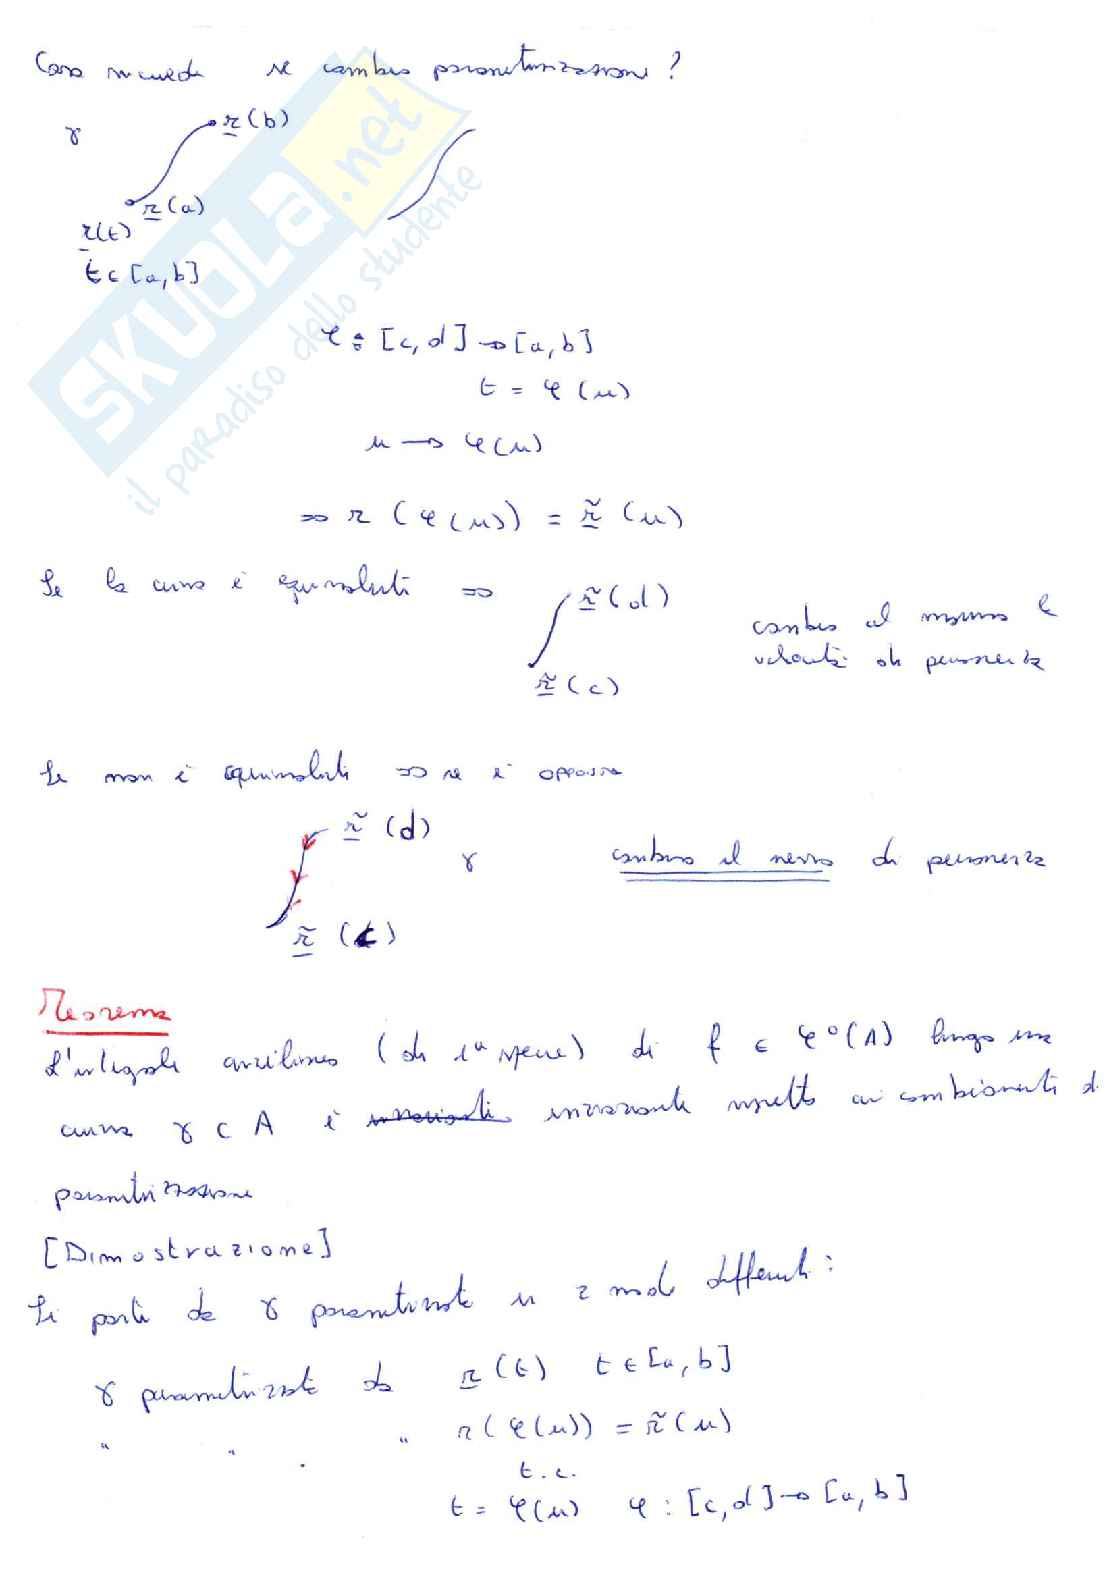 Cosa succede se cambio parametrizzazione?
γ
r(b)
r(a)
r(t)
t ∈ [a, b]
φ : [c, d] → [a, b]
t = φ(u)
u → φ(u)
⇒ r(φ(u)) = r̃(u)
Se la curva è equivalente ⇒
r̃(d)
r̃(c)
cambio al massimo la
velocità di percorrenza
Se non è equivalente ⇒ se è opposta
r̃(d)
γ
r̃(c)
cambio il verso di percorrenza
Teorema
L'integrale curvilineo (di 1ª specie) di f ∈ φ⁰(A) lungo una
curva γ ⊂ A è invariante rispetto ai cambiamenti di
parametrizzazione
[Dimostrazione]
Si parte da γ parametrizzata in 2 modi differenti:
γ parametrizzata da r(t) t ∈ [a, b]
" " " r(φ(u)) = r̃(u)
t.c.
t = φ(u) φ : [c, d] → [a, b]
SKUOLa.net
il paradiso dello studente